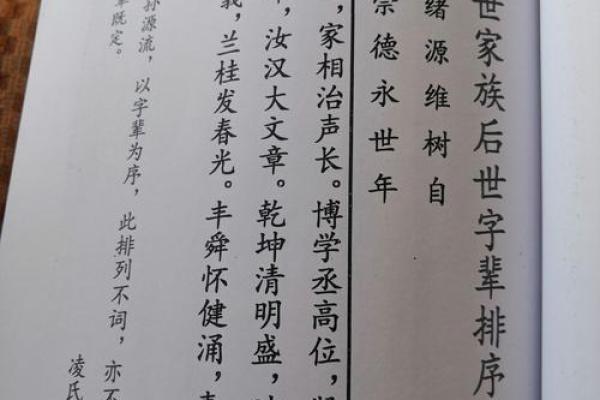 世家族后世字辈排序
绪源维树自
崇德永世年
，家相治声长。博学丞高位，
，汝汉大文章。乾坤清明盛，
，兰桂发春光。丰舜怀健涌，
源流，以字辈为序，此排列不词，亦不
既定。 凌氏